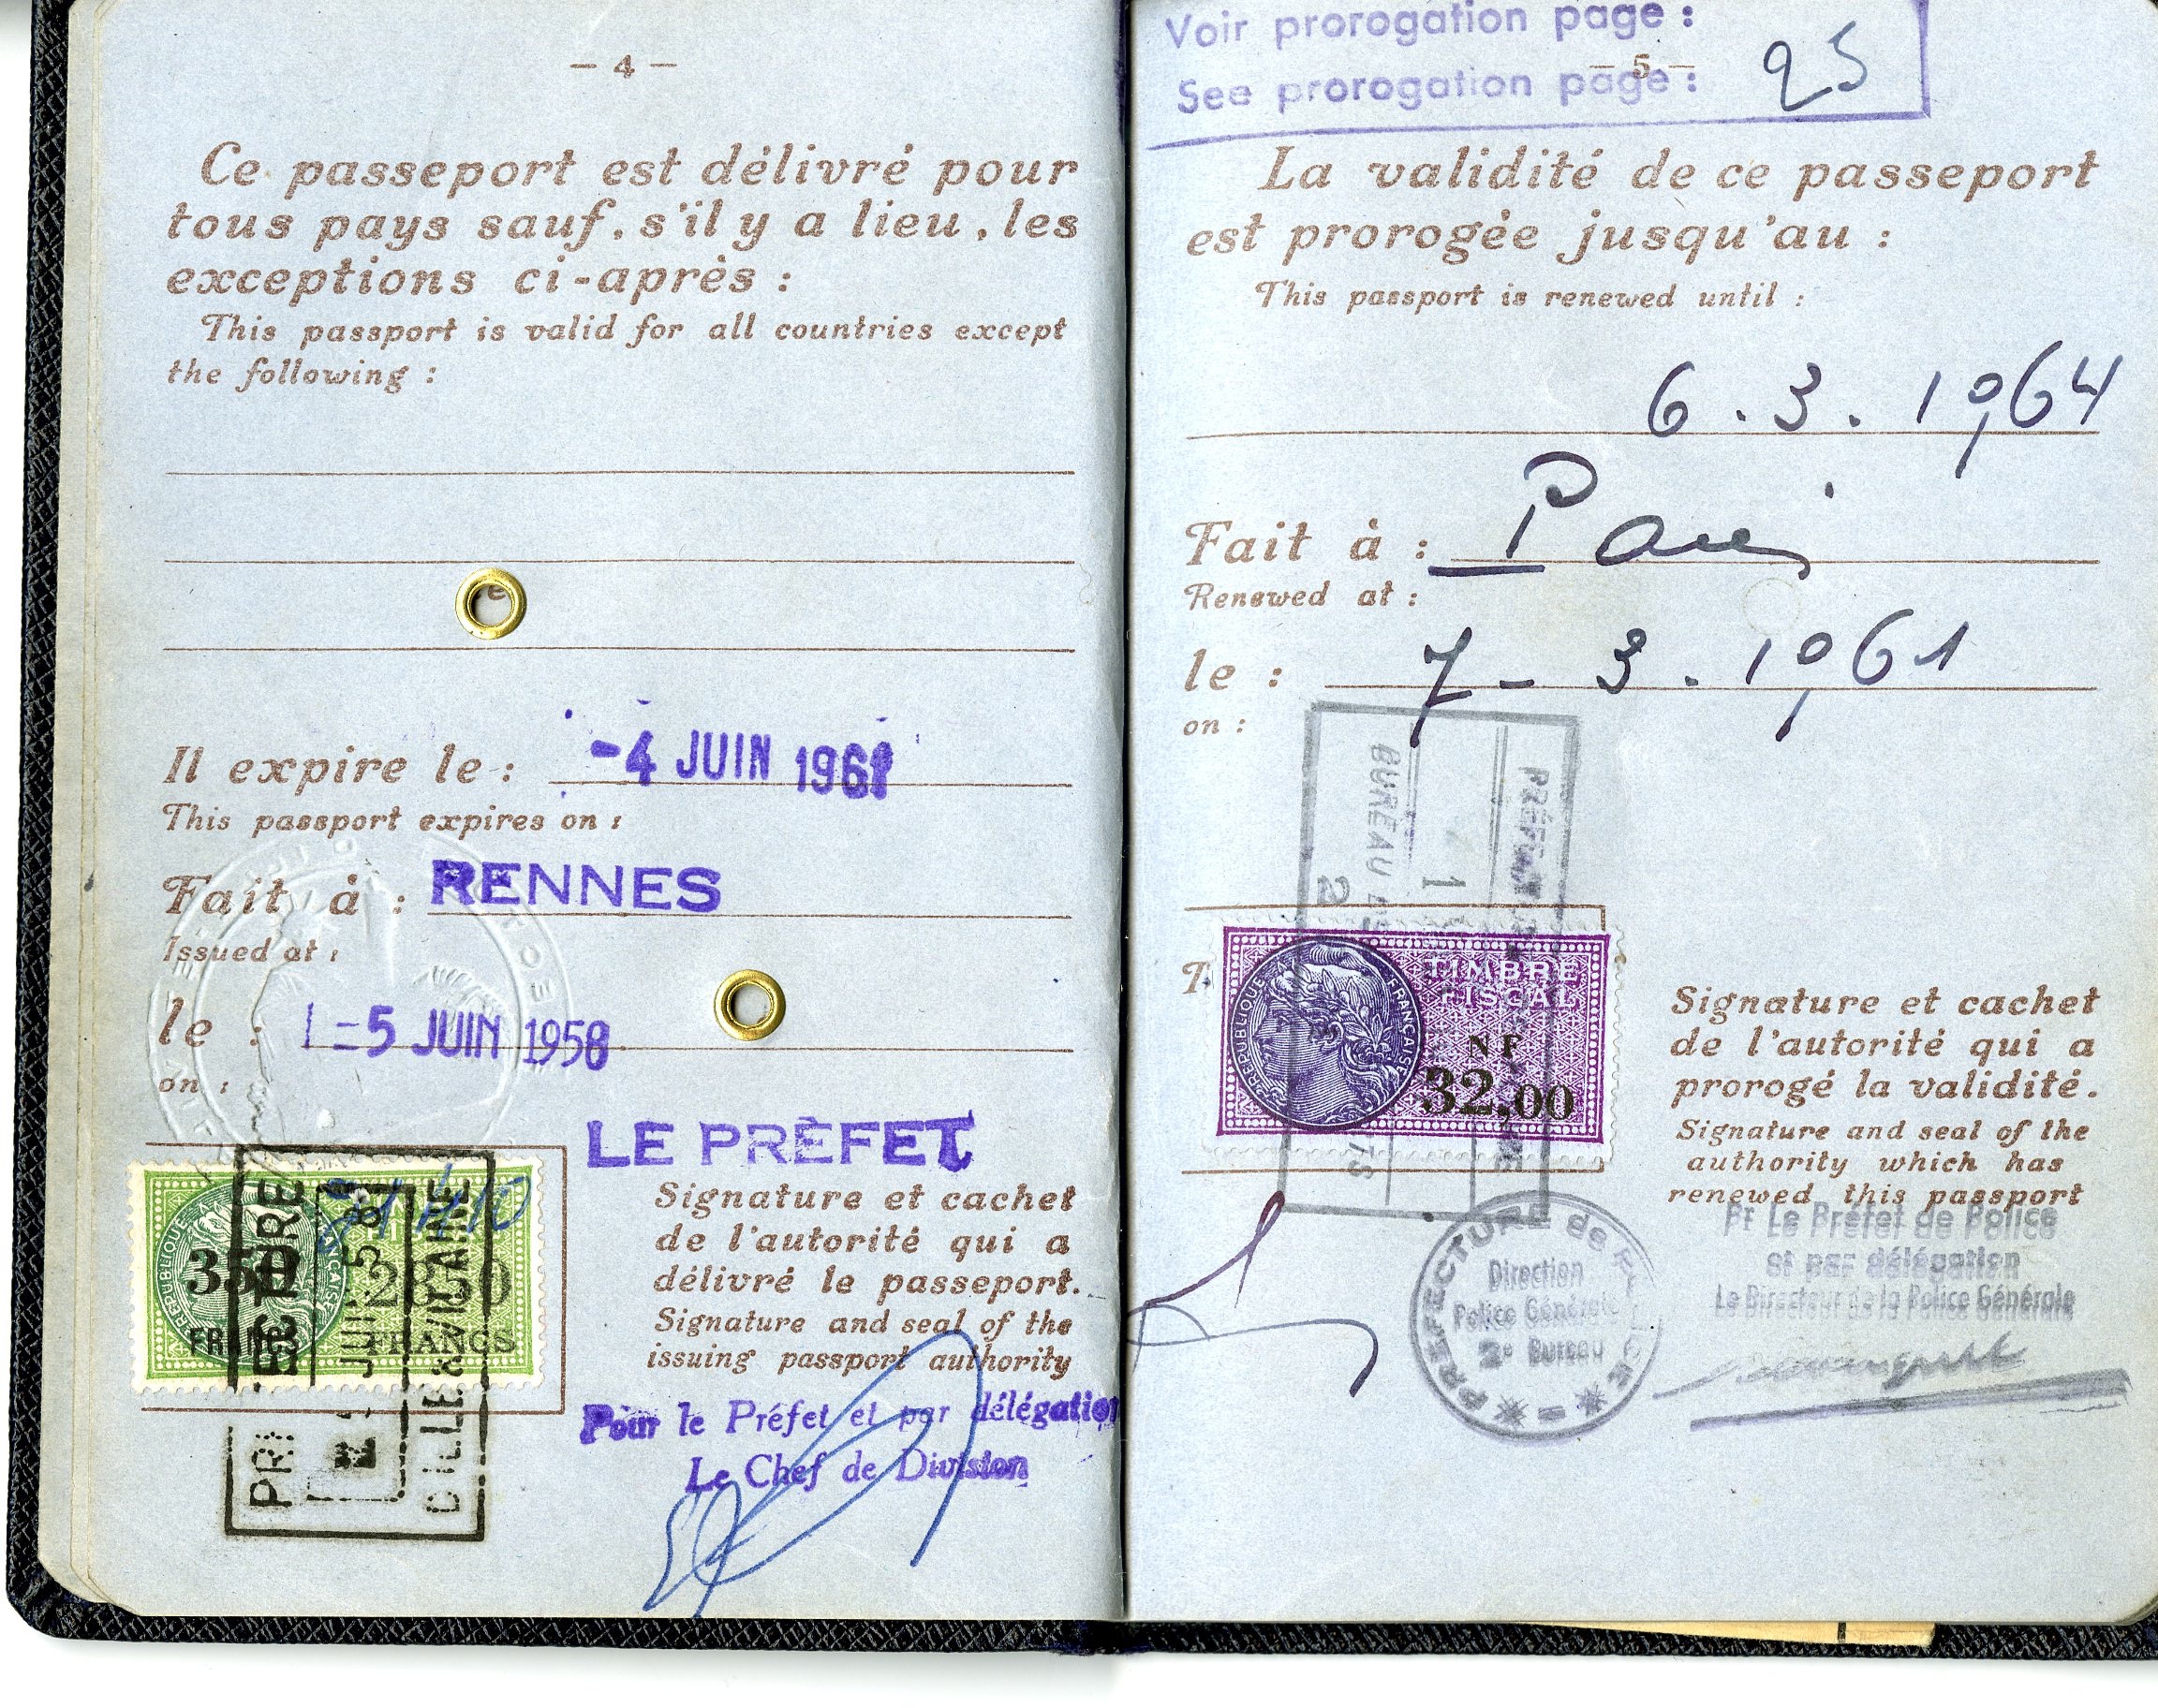 — 4 —
Ce passeport est délivré pour
tous pays sauf, s'il y a lieu, les
exceptions ci-après :
This passport is valid for all countries except
the following :
Il expire le : -4 JUIN 1961
This passport expires on :
Fait à : RENNES
Issued at :
le : -5 JUIN 1958
on :
LE PRÉFET
Signature et cachet
de l'autorité qui a
délivré le passeport.
Signature and seal of the
issuing passport authority
Pour le Préfet et par délégation
Le Chef de Division
RÉPUBLIQUE FRANÇAISE
350
FRANCS
FRANCS
Voir prorogation page :
See prorogation page : 25
— 5 —
La validité de ce passeport
est prorogée jusqu'au :
This passport is renewed until :
6.3.1964
Fait à : Paris
Renewed at :
le : 7-3.1961
on :
BUREAU
TIMBRE
FISCAL
RÉPUBLIQUE FRANÇAISE
NF
32,00
Signature et cachet
de l'autorité qui a
prorogé la validité.
Signature and seal of the
authority which has
renewed this passport
PREFECTURE de POLICE
Direction
Police Générale
2e Bureau
Pr Le Préfet de Police
et par délégation
Le Directeur de la Police Générale